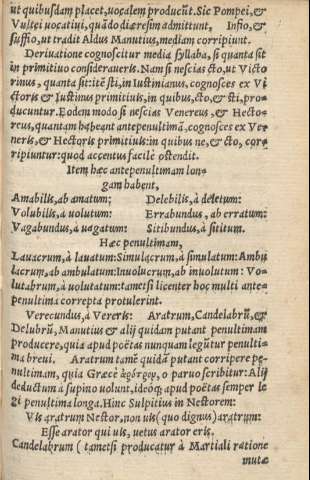 ut quibusdam placet, uocalem producūt. Sic Pompei, &
Vultei uocatiui, quādo diæresim admittunt, Infio, &
suffio, ut tradit Aldus Manutius, mediam corripiunt.
Deriuatione cognoscitur media syllaba, si quanta sit
in primitiuo consideraueris. Nam si nescias cto, ut Victo
rinus, quanta sit: itē sti, in Iustinianus, cognosces ex Vi
ctoris & Iustinus primitiuis, in quibus, cto, & sti, pro-
ducuntur. Eodem modo si nescias Venereus, & Hecto-
reus, quantam habeant antepenultimā, cognosces ex Ve-
neris, & Hectoris primitiuis: in quibus ne, & cto, cor-
ripiuntur: quod accentus facilè ostendit.
Item hæc antepenultimam lon-
gam habent,
Amabilis, ab amatum; Delebilis, à deletum:
Volubilis, à uolutum: Errabundus, ab erratum:
Vagabundus, à uagatum: Sitibundus, à sititum.
Hæc penultimam,
Lauacrum, à lauatum: Simulacrum, à simulatum: Ambu
lacrum, ab ambulatum: Inuolucrum, ab inuolutum: Vo-
lutabrum, à uolutatum: tametsi licenter hoc multi ante-
penultima correpta protulerint.
Verecundus, à Vereris: Aratrum, Candelabrū, &
Delubrū, Manutius & alij quidam putant penultimam
producere, quia apud poëtas nunquam legūtur penulti-
ma breui. Aratrum tamē quidā putant corripere pe-
nultimam, quia Græcè ἄροτρον, o paruo scribitur: Alij
deductum à supino uolunt, ideoq; apud poëtas semper le
gi penultima longa. Hinc Sulpitius in Nestorem:
Vis aratrum Nestor, non uis (quo dignus) aratrum:
Esse arator qui uis, uetus arator eris.
Candelabrum (tametsi producatur à Martiali ratione
mutæ